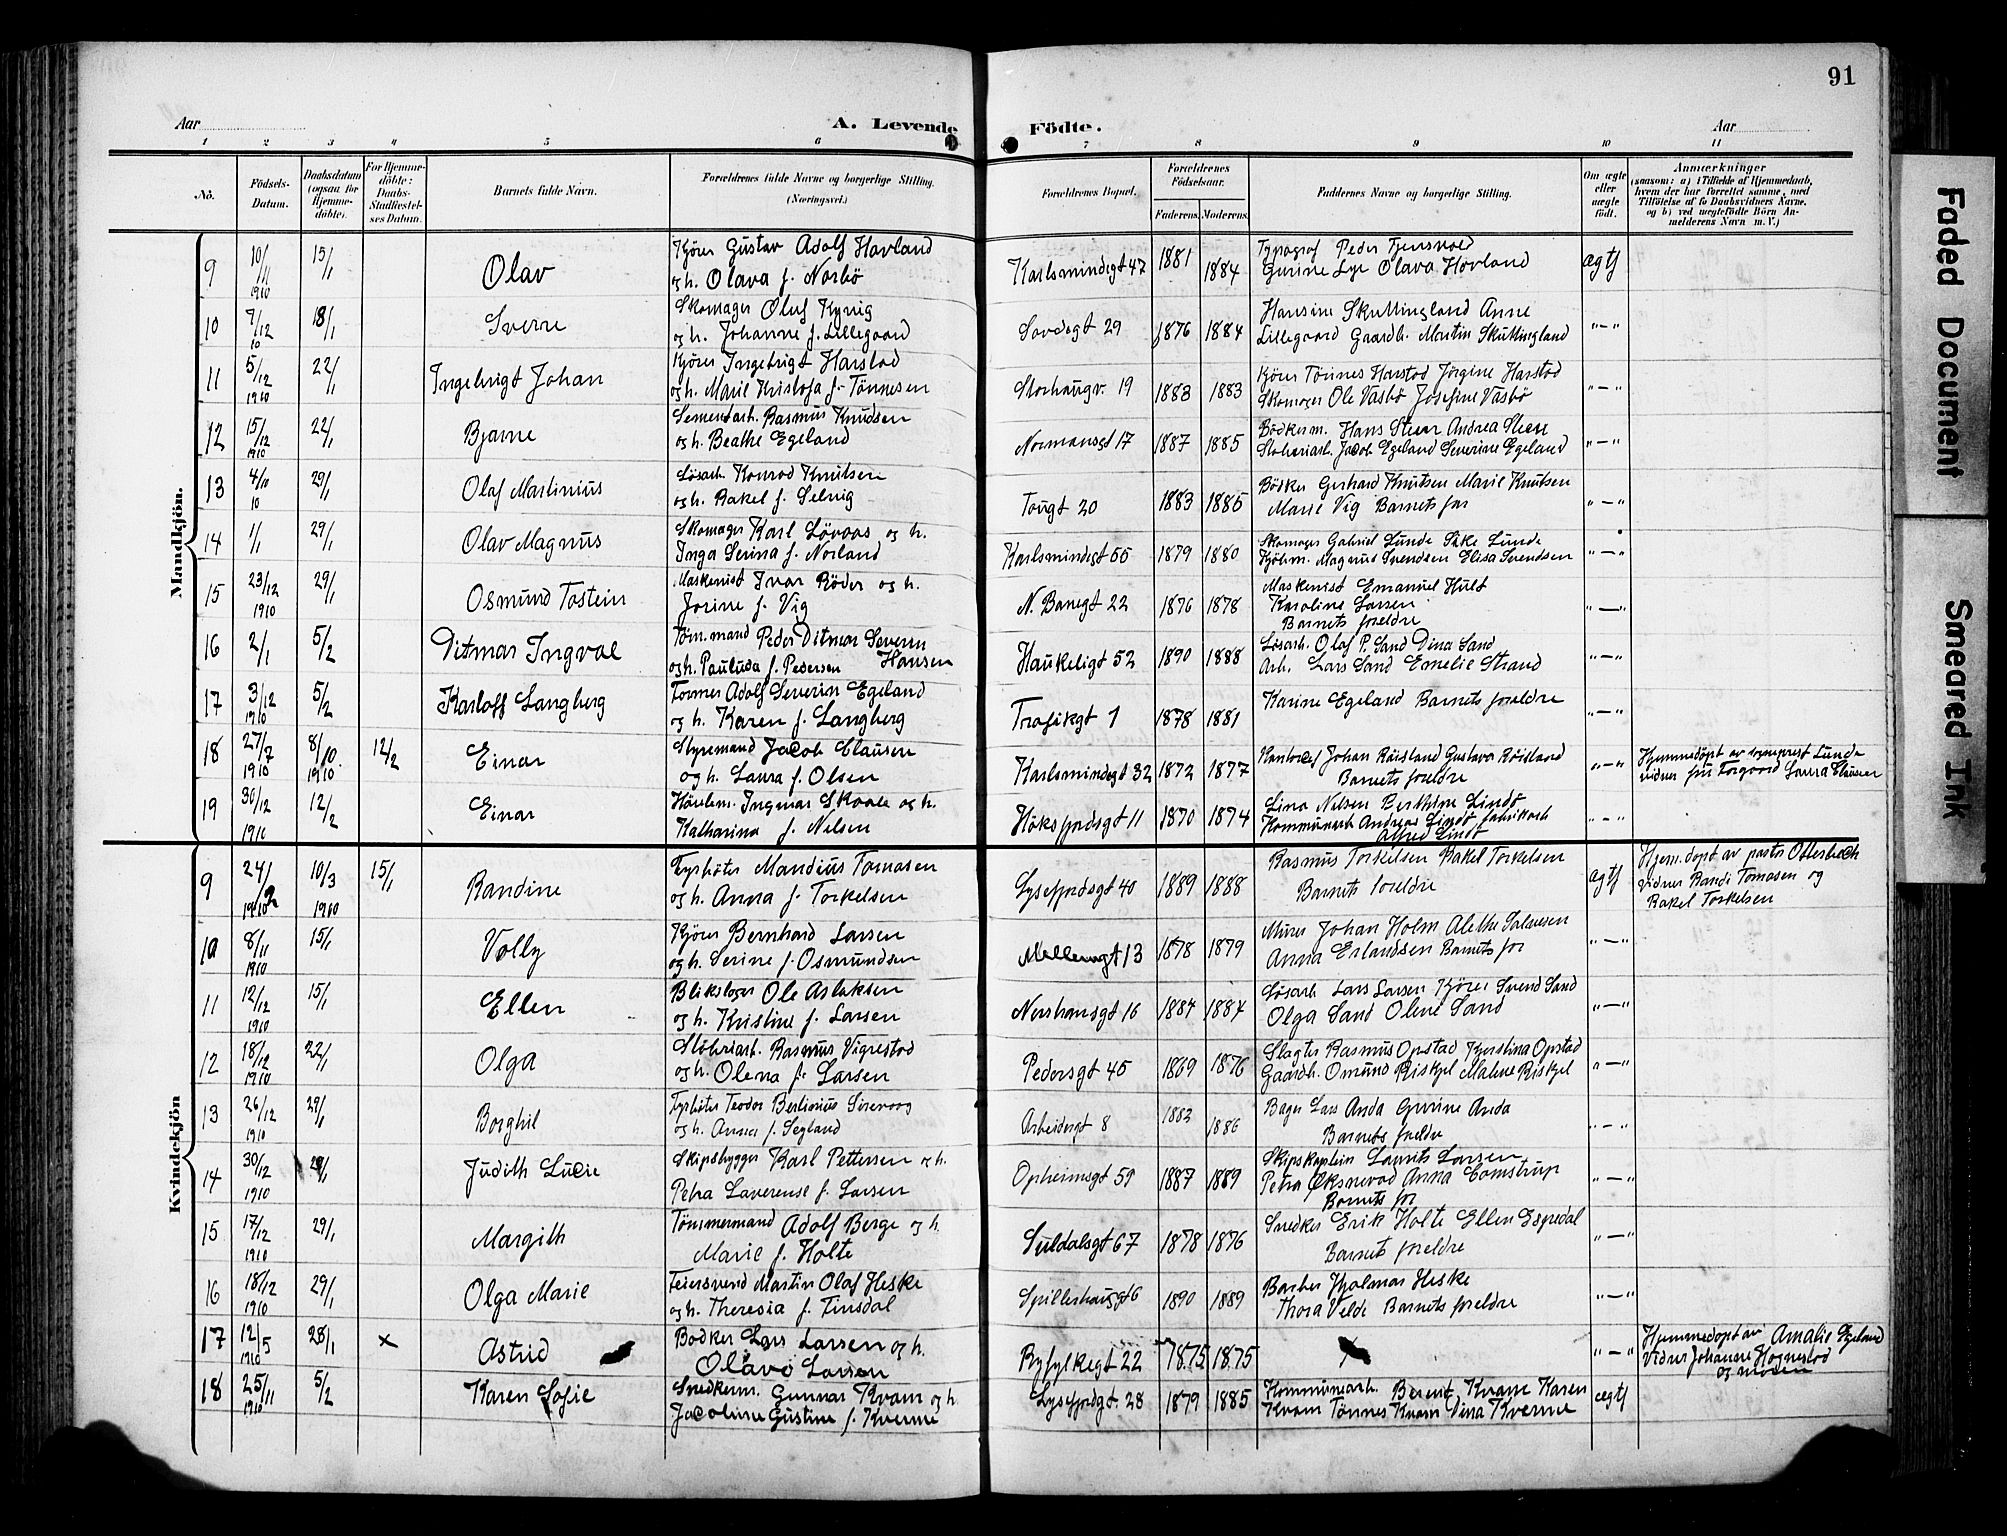 91
Aar
A. Levende Födte.
Aar
1 2 3 4 5 6 7 8 9 10 11
No.
Födsels-Datum.
Daabsdatum (ogsaa for Hjemme-döbte).
For Hjemme-döbte: Daabs-Stadfæstel-ses Datum.
Barnets fulde Navn.
Forældrenes fulde Navne og borgerlige Stilling. (Næringsvei.)
Forældrenes Bopæl.
Forældrenes Födselsaar.
Faderens. Moderens.
Faddernes Navne og borgerlige Stilling.
Om ægte eller uægte födt.
Anmærkninger
(saasom: a) i Tilfælde af Hjemmedaab, hvem der har forrettet samme, med Tilföielse af to Daabsvidners Navne. og b) ved uægtefödte Börn An-melderens Navn m. V.)
Mandkjön.
9 10/11 1910 15/1 Olav Kjører Gustav Adolf Havland og h. Olava f. Norbö Karlsmindegt 47 1881 1884 Typograf Peder Gurine Lye Olava Hovland ægtf
10 7/12 10 18/1 Sverre Skomager Oluf Kynig og h. Johanne f. Lillegaard 29 1876 1884 Hansine Skuttingland Anne Lillegaard Gaardb. Martin Skuttingland "-"
11 5/12 1910 22/1 Ingebrigt Johan Kjører Ingebrigt Harstad og h. Marie Kristofa f. Tönnesen Storhaugv. 19 1883 1883 Kjörer Tönnes Harstad Jörgine Harstad Skomager Ole Vasbö Josefine Vasbö "-"
12 15/12 1910 22/1 Bjarne Sementarb. Rasmus Knudsen og h. Beathe Egeland Normansgt 17 1887 1885 Bödkerm. Hans Steen Andrea Steen Stoberiarb. Jacob Egeland Severine Egeland "-"
13 4/11 10 29/1 Olaf Martinius Løsarb. Konrad Knutsen og h. Rakel f. Selvig Tougt 20 1883 1885 Bödker Gerhard Knutsen Marie Knutsen Marie Vig Barnets far "-"
14 1/1 29/1 Olav Magnus Skomager Karl Lövaas og h. Inga Serina f. Norland Karlsmindegt 55 1879 1880 Skomager Gabriel Lunde Silke Lunde Kjöbm. Magnus Svendsen Elisa Svendsen "-"
15 23/12 1910 29/1 Osmund Tostein Maskenist Ivar Röder og h. Jorine f. Vig N. Banegt 22 1876 1878 Maskenist Emanuel Hult Karoline Larsen Barnets foreldre "-"
16 2/1 5/2 Ditmar Ingval Töm.mand Peder Ditmar Severin Hansen og h. Paulusa f. Pedersen Haukeligt 52 1890 1888 Løsarb. Olaf P. Sand Dina Sand Arb. Lars Sand Emelie Strand "-"
17 3/12 1910 5/2 Karloff Langberg Former Adolf Severin Egeland og h. Karen f. Langberg Trafikgt 1 1878 1881 Karine Egeland Barnets foreldre "-"
18 27/7 1910 8/10 1910 12/2 Einar Styremand Jacob Clausen og h. Laura f. Olsen Karlsmindegt 32 1872 1877 Kontorchef Johan Röisland Gustava Röisland Barnets foreldre "-" Hjemmedöpt av sogneprest Lunde vidner frü Torgaard Laura Clausen
19 30/12 1910 12/2 Einar Ingmar Skaale og h. Katharina f. Nilsen Höksfjordsgt 11 1870 1874 Lina Nilsen Berthine Lindö Kommunearb. Andreas Lindö fabrikarb Alfred Lindö "-"
Kvindekjön
9 24/2 1910 10/3 1910 15/1 Randine Fyrböter Mandius Tomasen og h. Anna f. Torkelsen Lysefjordsgt 40 1889 1888 Rasmus Torkelsen Rakel Torkelsen Barnets foreldre ægtf Hjem.döpt av pastor Otterbech Vidner Randi Tomasen og Rakel Torkelsen
10 8/11 1910 15/1 Volly Kjører Bernhard Larsen og h. Serine f. Osmundsen Mellemgt 13 1878 1879 Murer Johan Holm Alethe Salvesen Anna Erlandsen Barnets far "-"
11 12/12 1910 15/1 Ellen Blikslager Ole Aslaksen og h. Kristine f. Larsen 16 1884 1884 Løsarb Lars Larsen Kjörer Svend Sand Olga Sand Olene Sand "-"
12 18/12 1910 22/1 Olga Stöberiarb. Rasmus Vigrestad og h. Olena f. Larsen Pedersgt 45 1869 1876 Slagter Rasmus Opstad Kjerstina Opstad Gaardb. Omund Riskjel Malene Riskjel "-"
13 26/12 1910 29/1 Borghil Fyrböter Teodor Bertinius Sirevaag og h. Anna f. Segland Arbeidergt 8 1882 1886 Bager Lars Anda Gurine Anda Barnets foreldre "-"
14 30/12 1910 29/1 Judith Lucie Skipsbygger Karl Pettersen og h. Petra Laverense f. Larsen Opheimsgt 59 1887 1889 Skipskaptein Laurits Larsen Petra Øksnevad Anna Comstrup Barnets far "-"
15 17/12 1910 29/1 Margith Tömmermand Adolf Berge og h. Marie f. Holte Suldalsgt 67 1878 1876 Snedker Erik Holte Ellen Espedal Barnets foreldre "-"
16 18/12 1910 29/1 Olga Marie Feiersvend Martin Olaf Heske og h. Theresia f. Tinsdal Spilderhaugsgt 6 1890 1889 Barber Hjalmar Heske Thora Velde Barnets foreldre "-"
17 12/5 1910 28/1 x Astrid Bödker Lars Larsen og h. Olava Larsen Ryfylkegt 22 1875 1875 "-" Hjemmedöpt av Amalie Egeland Vidner Johanne Hognestad og moren
18 25/11 1910 5/2 Karen Sofie Snedkerm. Gunnar Kvam og h. Jacobine Gustine f. Kverme Lysefjordgt. 28 1879 1885 Kommunearb. Berent Kvam Karen Kvam Tönnes Kvam Dina Kverme ægtf
Faded Document
Smeared Ink